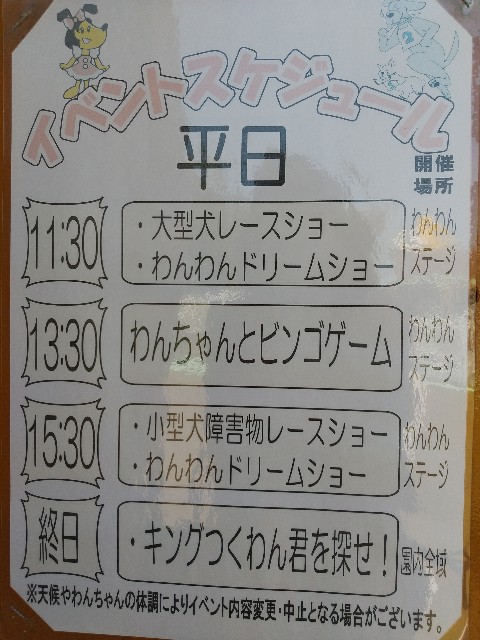 イベントスケジュール
平日
開催
場所
11:30
・大型犬レースショー
・わんわんドリームショー
わんわん
ステージ
13:30
わんちゃんとビンゴゲーム
わんわん
ステージ
15:30
・小型犬障害物レースショー
・わんわんドリームショー
わんわん
ステージ
終日
・キングつくわん君を探せ！
園内全域
※天候やわんちゃんの体調によりイベント内容変更・中止となる場合がございます。